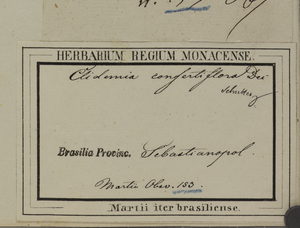 HERBARIUM REGIUM MONACENSE.
Clidemia confertiflora
Brasilia Provinc. Sebastianopol.
Martii Obs. 153.
Martii iter brasiliense.